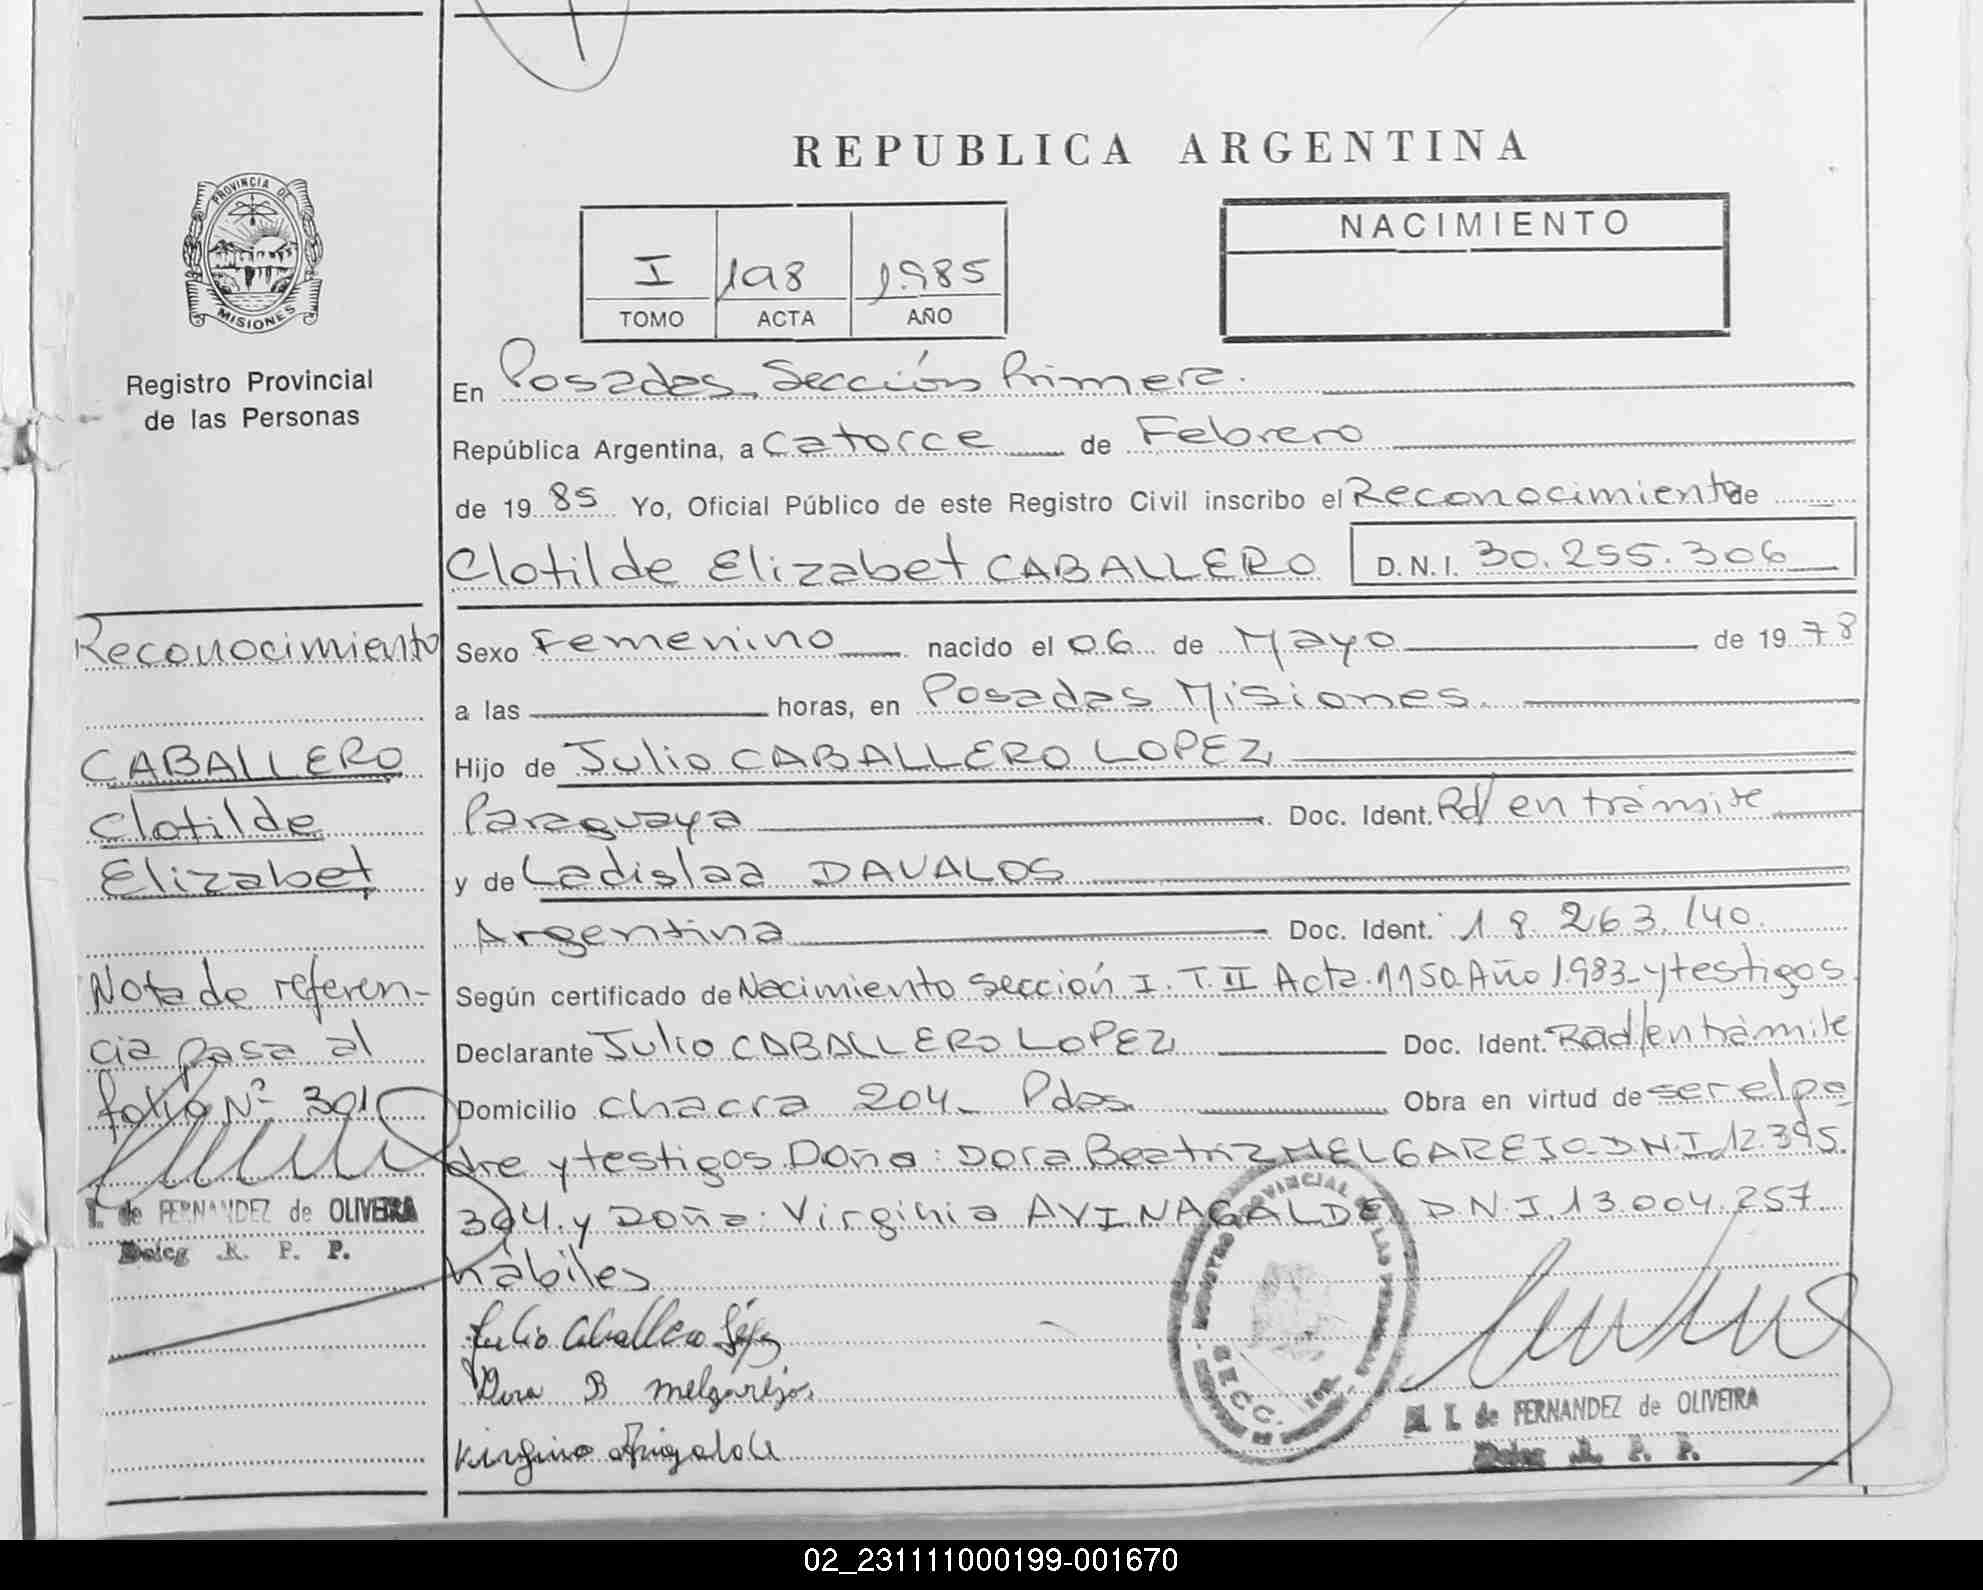 REPUBLICA ARGENTINA
PROVINCIA DE
MISIONES
Registro Provincial
de las Personas
I 198 1985
TOMO ACTA AÑO
NACIMIENTO
En Posadas, Sección Primera.
República Argentina, a catorce de Febrero
de 1985 Yo, Oficial Público de este Registro Civil inscribo el Reconocimiento de
Clotilde Elizabet CABALLERO D.N.I. 30.255.306
Sexo Femenino nacido el 06 de Mayo de 1978
a las horas, en Posadas Misiones.
Hijo de Julio CABALLERO LOPEZ
Paraguaya Doc. Ident. Rd/ en trámite
y de Ladislaa DAVALOS
Argentina Doc. Ident. 18.263.140.
Según certificado de Nacimiento Sección I. T. II Acta.1150.Año 1.983- y testigos
Declarante Julio CABALLERO LOPEZ Doc. Ident. Rad/en trámite
Domicilio chacra 204- Pdas. Obra en virtud de ser el pa
dre y testigos Doña: Dora Beatriz MELGAREJO-D.N.I. 12.395.
304. y Doña: Virginia AVINAGALDE D.N.I. 13.004.257
hábiles
Julio Caballero López
Dora B Melgarejo
Reconocimiento
CABALLERO
Clotilde
Elizabet
Nota de referen-
cia pasa al
folio Nº 301
I. de FERNANDEZ de OLIVEIRA
Deleg R. P. P.
SECC.
M. I. de FERNANDEZ de OLIVEIRA
Deleg R. P. P.
02_231111000199-001670